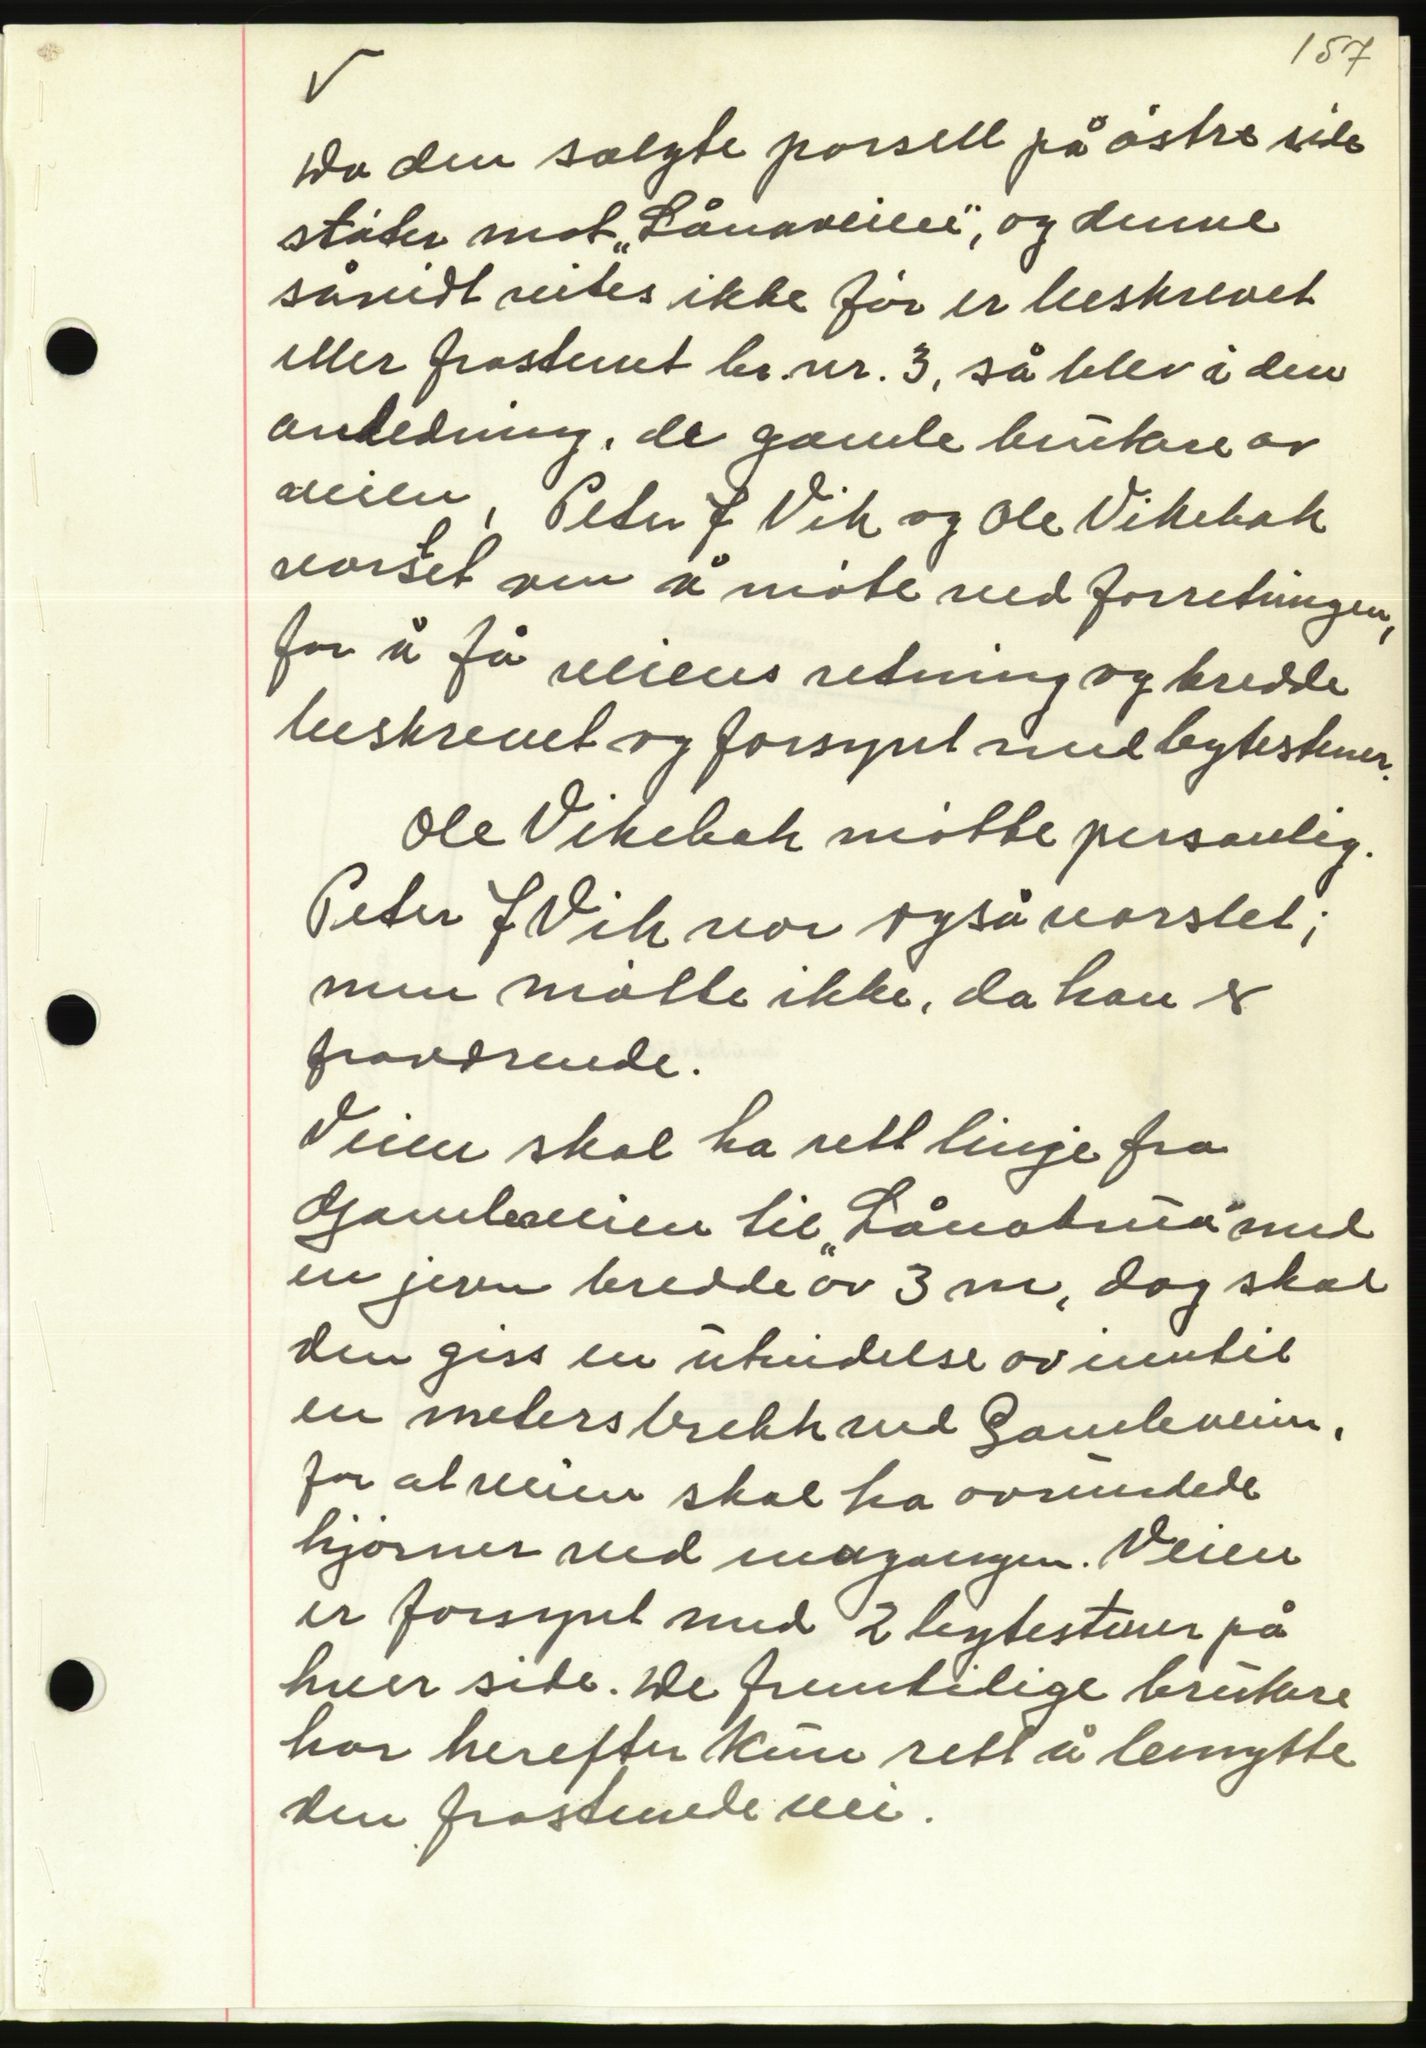 157
V
Da den solgte parsell på østre side
støter mot „Lånaveien", og denne
såvidt vites ikke før er beskrevet
eller frastenet br.nr. 3, så blev i den
anledning, de gamle brukere av
veien, Peter J Vik og Ole Vikebak
varslet om å møte ved forretningen,
for å få veiens retning og bredde
beskrevet og forsynt med bytestener.
Ole Vikebak møtte personlig.
Peter J Vik var også varslet;
men møtte ikke, da han er
fraværende.
Veien skal ha rett linje fra
Gamleveien til „Lånabrua" med
en jevn bredde av 3 m, dog skal
den giss en utvidelse av inntil
en meters brekk ved Gamleveien,
for at veien skal ha avrundede
hjørner ved inngangen. Veien
er forsynt med 2 bytestener på
hver side. De fremtidige brukere
har herefter kun rett å benytte
den frastenede vei.